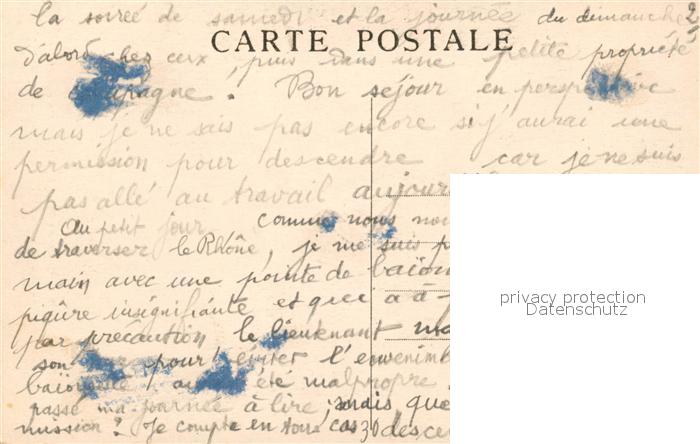 la soirée de samedi et la journée du dimanche
CARTE POSTALE
d'abord chez eux, puis dans une petite propriété
de campagne. Bon séjour en perspective
mais je ne sais pas encore si j'aurai une
permission pour descendre car je ne suis
pas allé au travail
Au petit jour comme nous
de traverser le Rhône, je me suis
main avec une pointe de
piqûre insignifiante et que
par précaution le lieutenant
son pour éviter
été malpropre
passé ma journée à lire, mais que
mission? Je compte en tous cas
privacy protection
Datenschutz